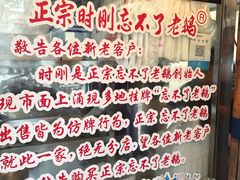 正宗时刚忘不了老鹅®
敬告各位新老客户:
时刚是正宗忘不了老鹅创始人
现市面上涌现多地挂牌“忘不了老鹅”
出售皆为仿牌行为,正宗忘不了老鹅
就此一家,绝无分店,望各位新老客户
购买正宗忘不了老鹅